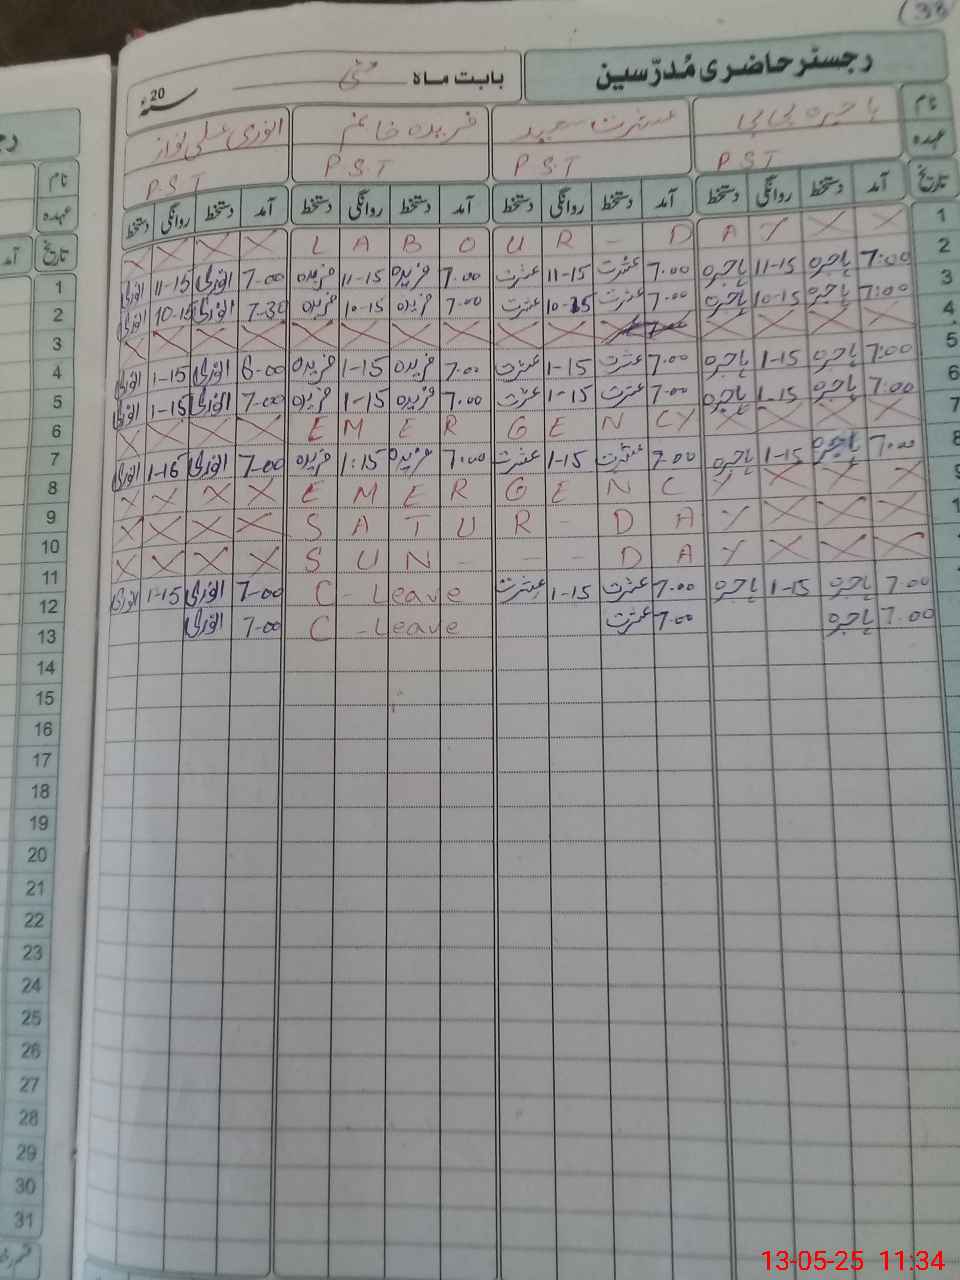 (33
رجسٹر حاضری مُدرّسین
بابت ماہ مئی سنہ 20
نام ہاجرہ بی بی عشرت سعید فریدہ خانم انوری علی نواز
عہدہ P.S.T P.S.T P.S.T P.S.T
تاریخ آمد دستخط روانگی دستخط آمد دستخط روانگی دستخط آمد دستخط روانگی دستخط آمد دستخط روانگی دستخط
1 X X X X L A B O U R - D A Y X X X
2 7:00 ہاجرہ 11-15 ہاجرہ 7.00 عشرت 11-15 عشرت 7.00 فریدہ 11-15 فریدہ 7.00 انوری 11-15 انوری
3 7:00 ہاجرہ 10-15 ہاجرہ 7.00 عشرت 10-15 عشرت 7.00 فریدہ 10-15 فریدہ 7-30 انوری 10-15 انوری
4 X X X X X X X X X X X X X X
5 7:00 ہاجرہ 1-15 ہاجرہ 7.00 عشرت 1-15 عشرت 7.00 فریدہ 1-15 فریدہ 8-00 انوری 1-15 انوری
6 7:00 ہاجرہ 1-15 ہاجرہ 7.00 عشرت 1-15 عشرت 7.00 فریدہ 1-15 فریدہ 7-00 انوری 1-15 انوری
7 X X X X E M E R G E N C Y X X X X
8 7:00 ہاجرہ 1-15 ہاجرہ 7.00 عشرت 1-15 عشرت 7.00 فریدہ 1:15 فریدہ 7-00 انوری 1-16 انوری
X X X X E M E R G E N C Y X X X
X X X X S A T U R - D A Y X X X
X X X X S U N - - - D A Y X X X
7.00 ہاجرہ 1-15 ہاجرہ 7.00 عشرت 1-15 عشرت C - Leave 7-00 انوری 1-15 انوری
7.00 ہاجرہ 7.00 عشرت C - Leave 7-00 انوری
نام
عہدہ
تاریخ آمد
1
2
3
4
5
6
7
8
9
10
11
12
13
14
15
16
17
18
19
20
21
22
23
24
25
26
27
28
29
30
31
13-05-25 11:34